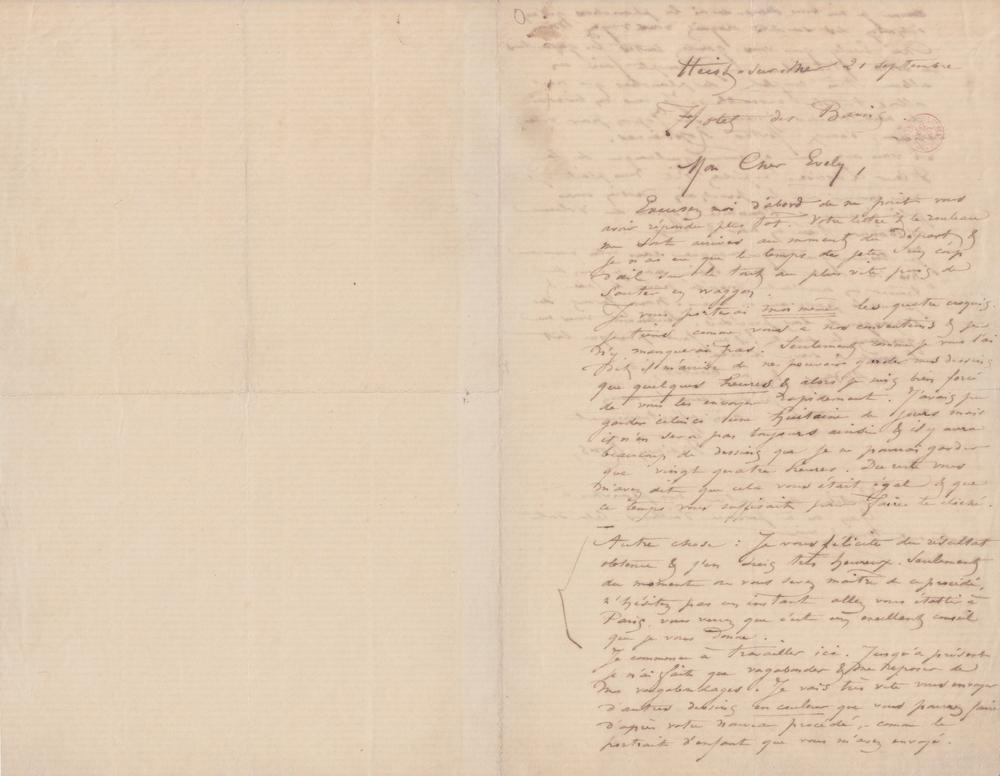 Heist-sur-Mer 21 septembre
Hotel des Bains.
Mon Cher Evely,
Excusez moi d'abord de ne point vous
avoir répondu plus tot. Votre lettre & le rouleau
me sont arrivés au moment du départ &
je n'ai eu que le temps de jeter un coup
d'œil sur le tout au plus vite puis de
sauter en waggon.
Je vous porterai moi même les quatre croquis.
je tiens comme vous à nos conventions & je
n'y manquerai pas. Seulement comme je vous l'ai
dit il m'arrive de ne pouvoir garder mes dessins
que quelques heures & alors je suis bien forcé
de vous les envoyer rapidement. J'avais pu
garder ceux ci une huitaine de jours mais
il n'en sera pas toujours ainsi & il y aura
beaucoup de dessins que je ne pourrai garder
que vingt quatre heures. Du reste vous
m'avez dit que cela vous était égal & que
ce temps vous suffisait pour faire le cliché.
Autre chose : Je vous félicite du résultat
obtenu & j'en suis très heureux. Seulement
du moment ou vous serez maître de ce procédé,
n'hésitez pas un instant allez vous établir à
Paris. vous verrez que c'est un excellent conseil
que je vous donne.
Je commence à travailler ici. Jusqu'à présent
je n'ai fait que vagabonder & me reposer de
mes vagabondages. Je vais très vite vous envoyer
d'autres dessins en couleur que vous pourrez faire
d'après votre nouveau procédé, comme le
portrait d'enfant que vous m'avez envoyé.